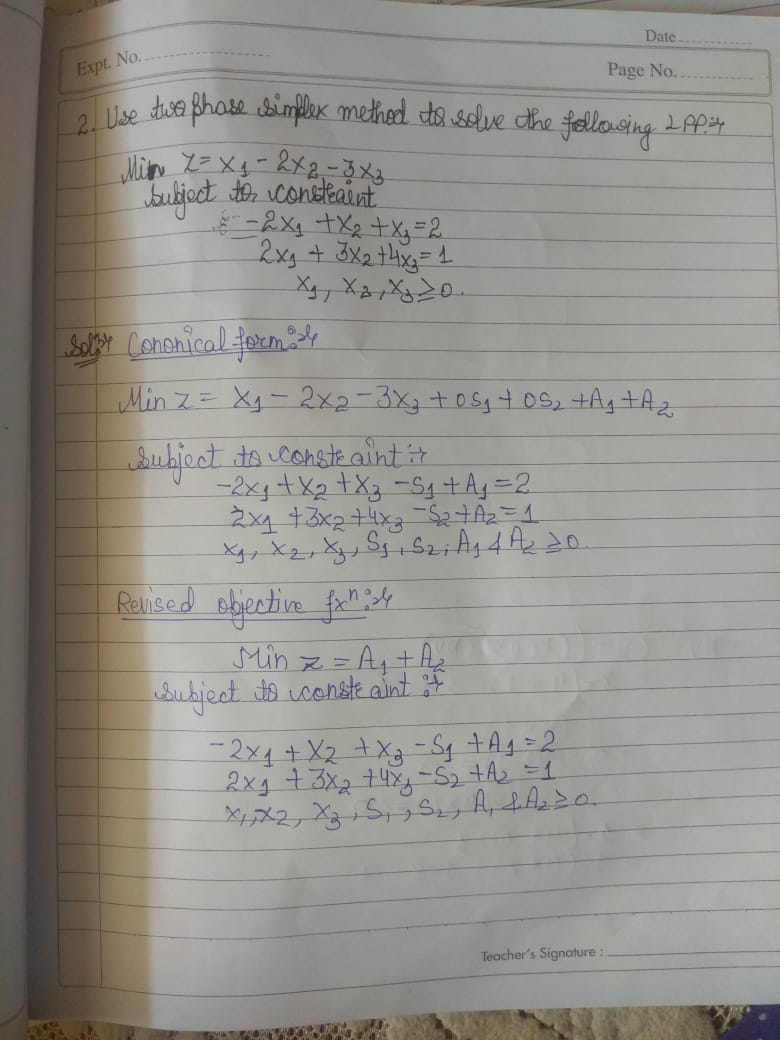 Date
Expt. No.
Page No.
2. Use two phase simplex method to solve the following LPP:→
Min Z = x1 - 2x2 - 3x3
Subject to constraint
-2x1 + x2 + x3 = 2
2x1 + 3x2 + 4x3 = 1
x1, x2, x3 ≥ 0.
Sol:→ Cononical form:→
Min Z = x1 - 2x2 - 3x3 + 0S1 + 0S2 + A1 + A2
Subject to constraint :→
-2x1 + x2 + x3 - S1 + A1 = 2
2x1 + 3x2 + 4x3 - S2 + A2 = 1
x1, x2, x3, S1, S2, A1 & A2 ≥ 0.
Revised objective fxn:→
Min z = A1 + A2
Subject to constraint :→
-2x1 + x2 + x3 - S1 + A1 = 2
2x1 + 3x2 + 4x3 - S2 + A2 = 1
x1, x2, x3, S1, S2, A1 & A2 ≥ 0.
Teacher's Signature :